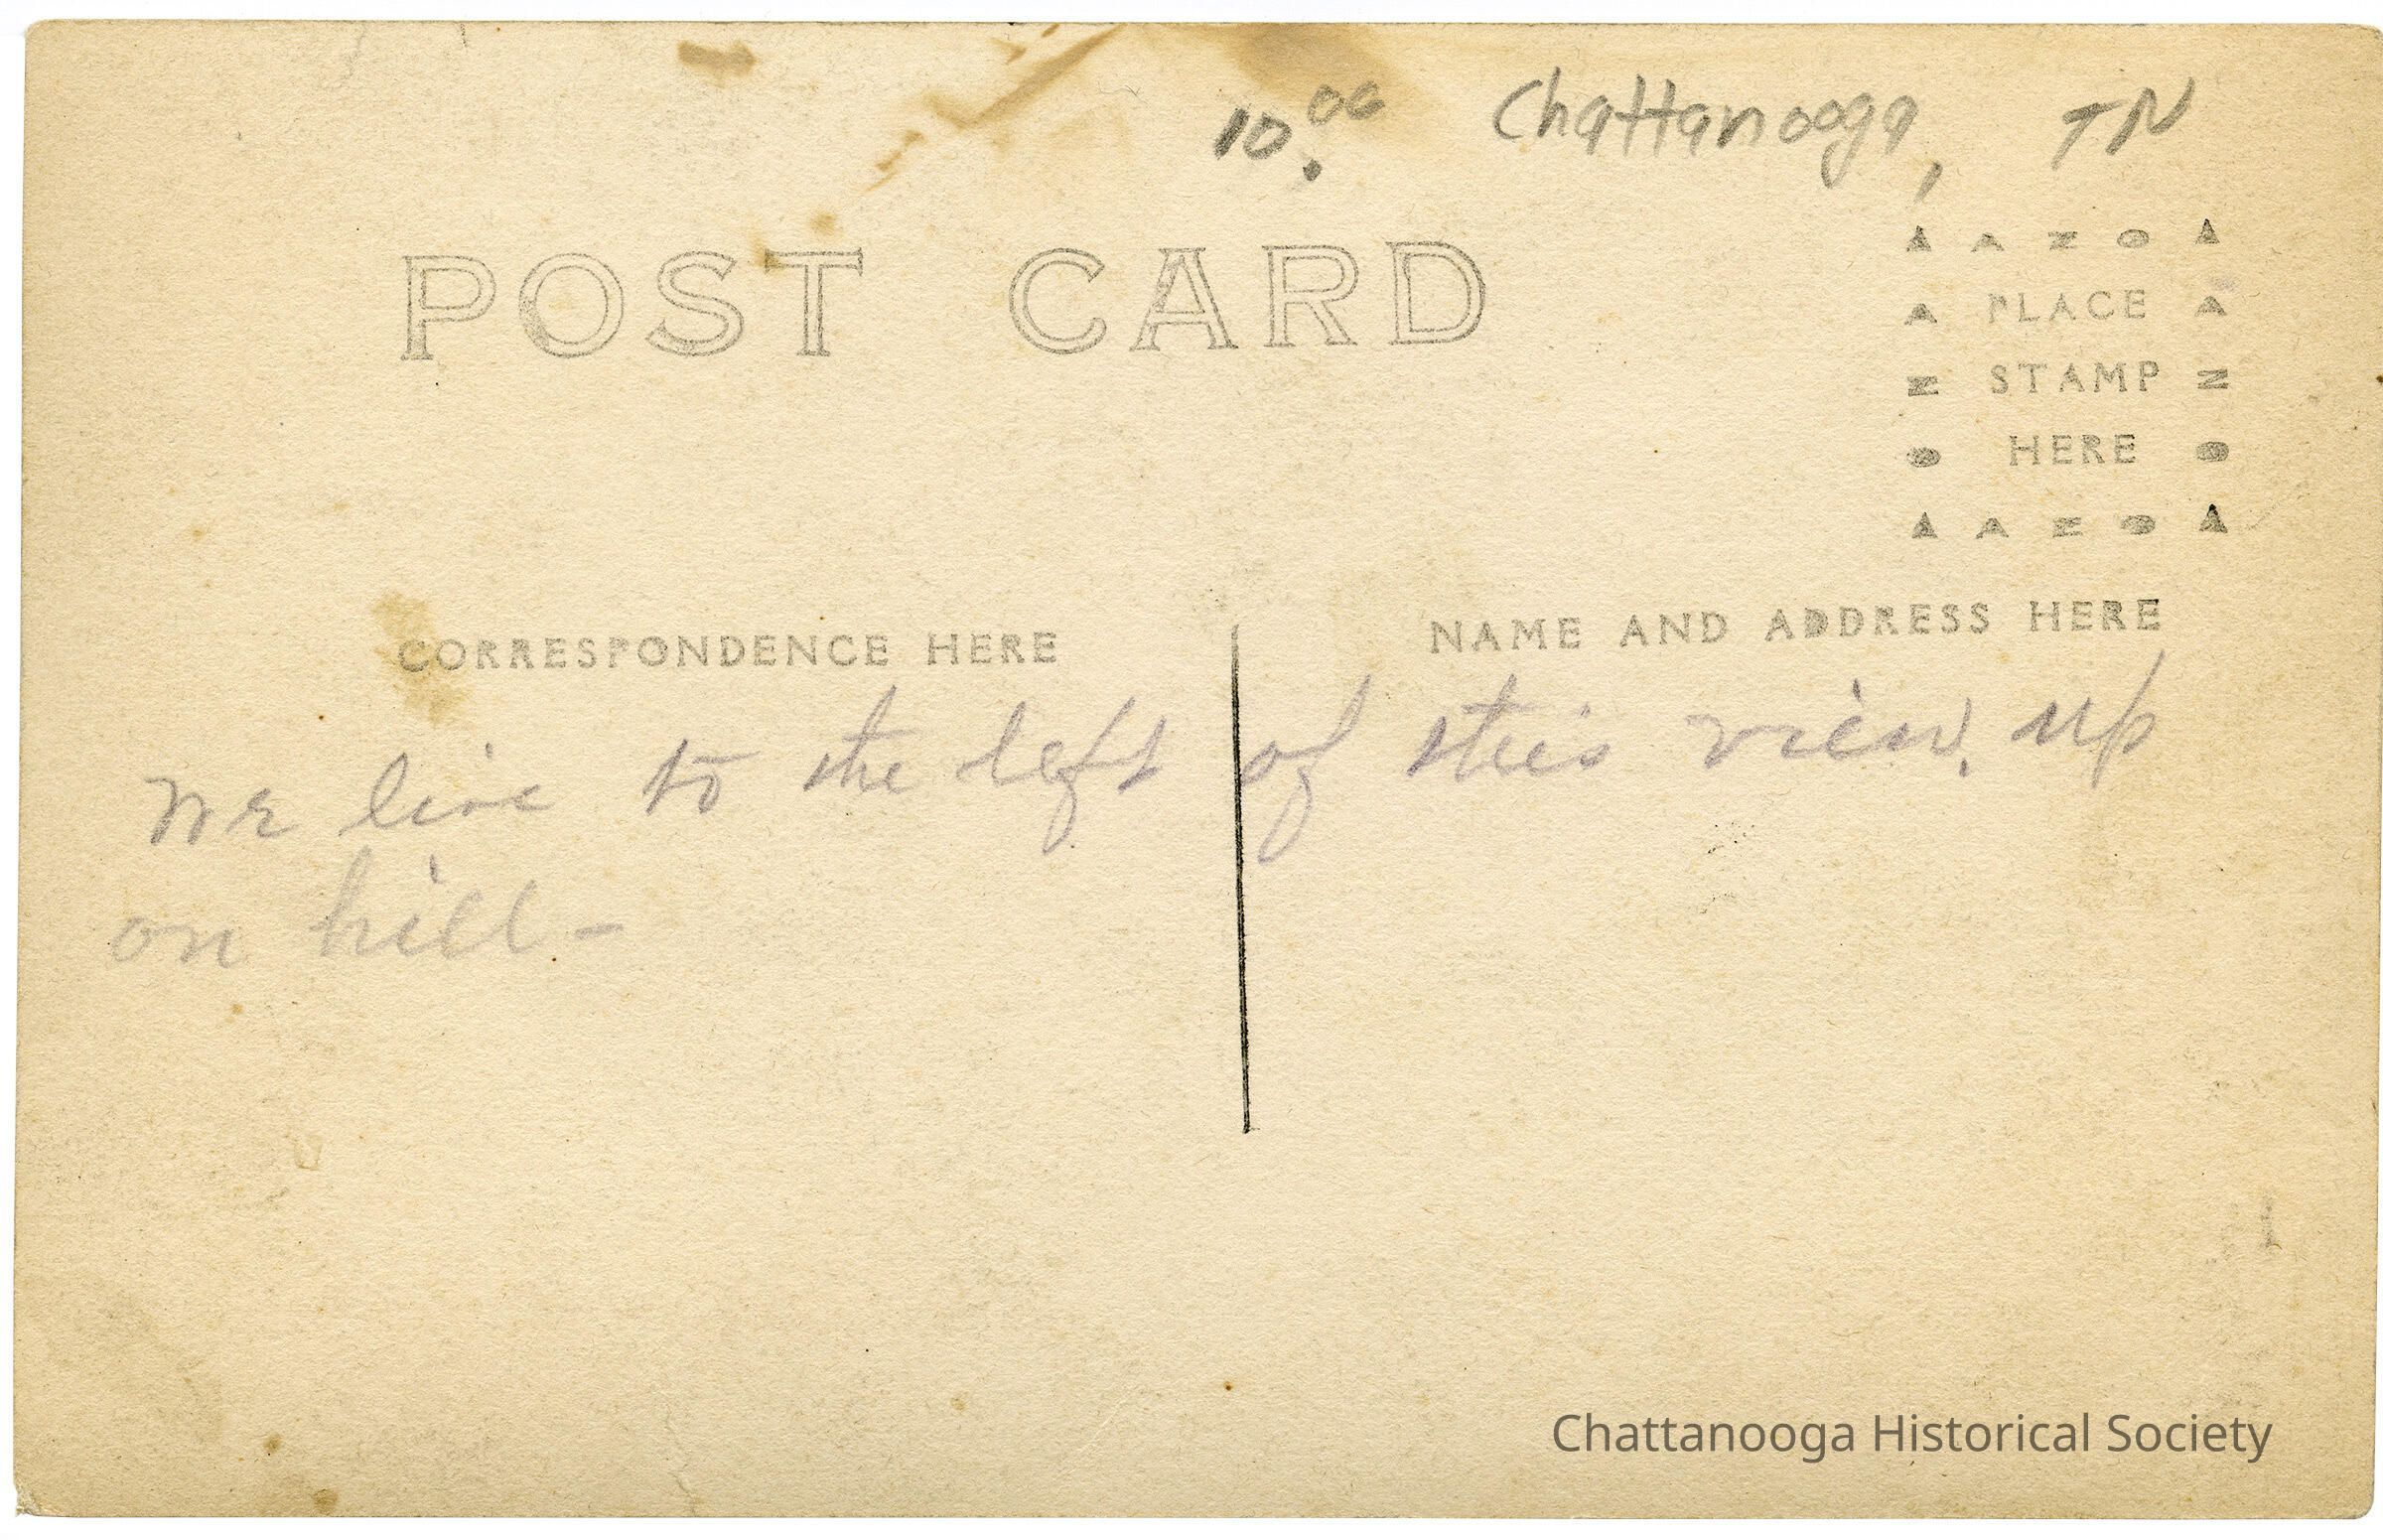 10.00 Chattanooga, TN
POST CARD
▲ A Z O ▲
A PLACE A
Z STAMP Z
O HERE O
▲ A Z O ▲
CORRESPONDENCE HERE
NAME AND ADDRESS HERE
We live to the left of this view. up
on hill -
Chattanooga Historical Society